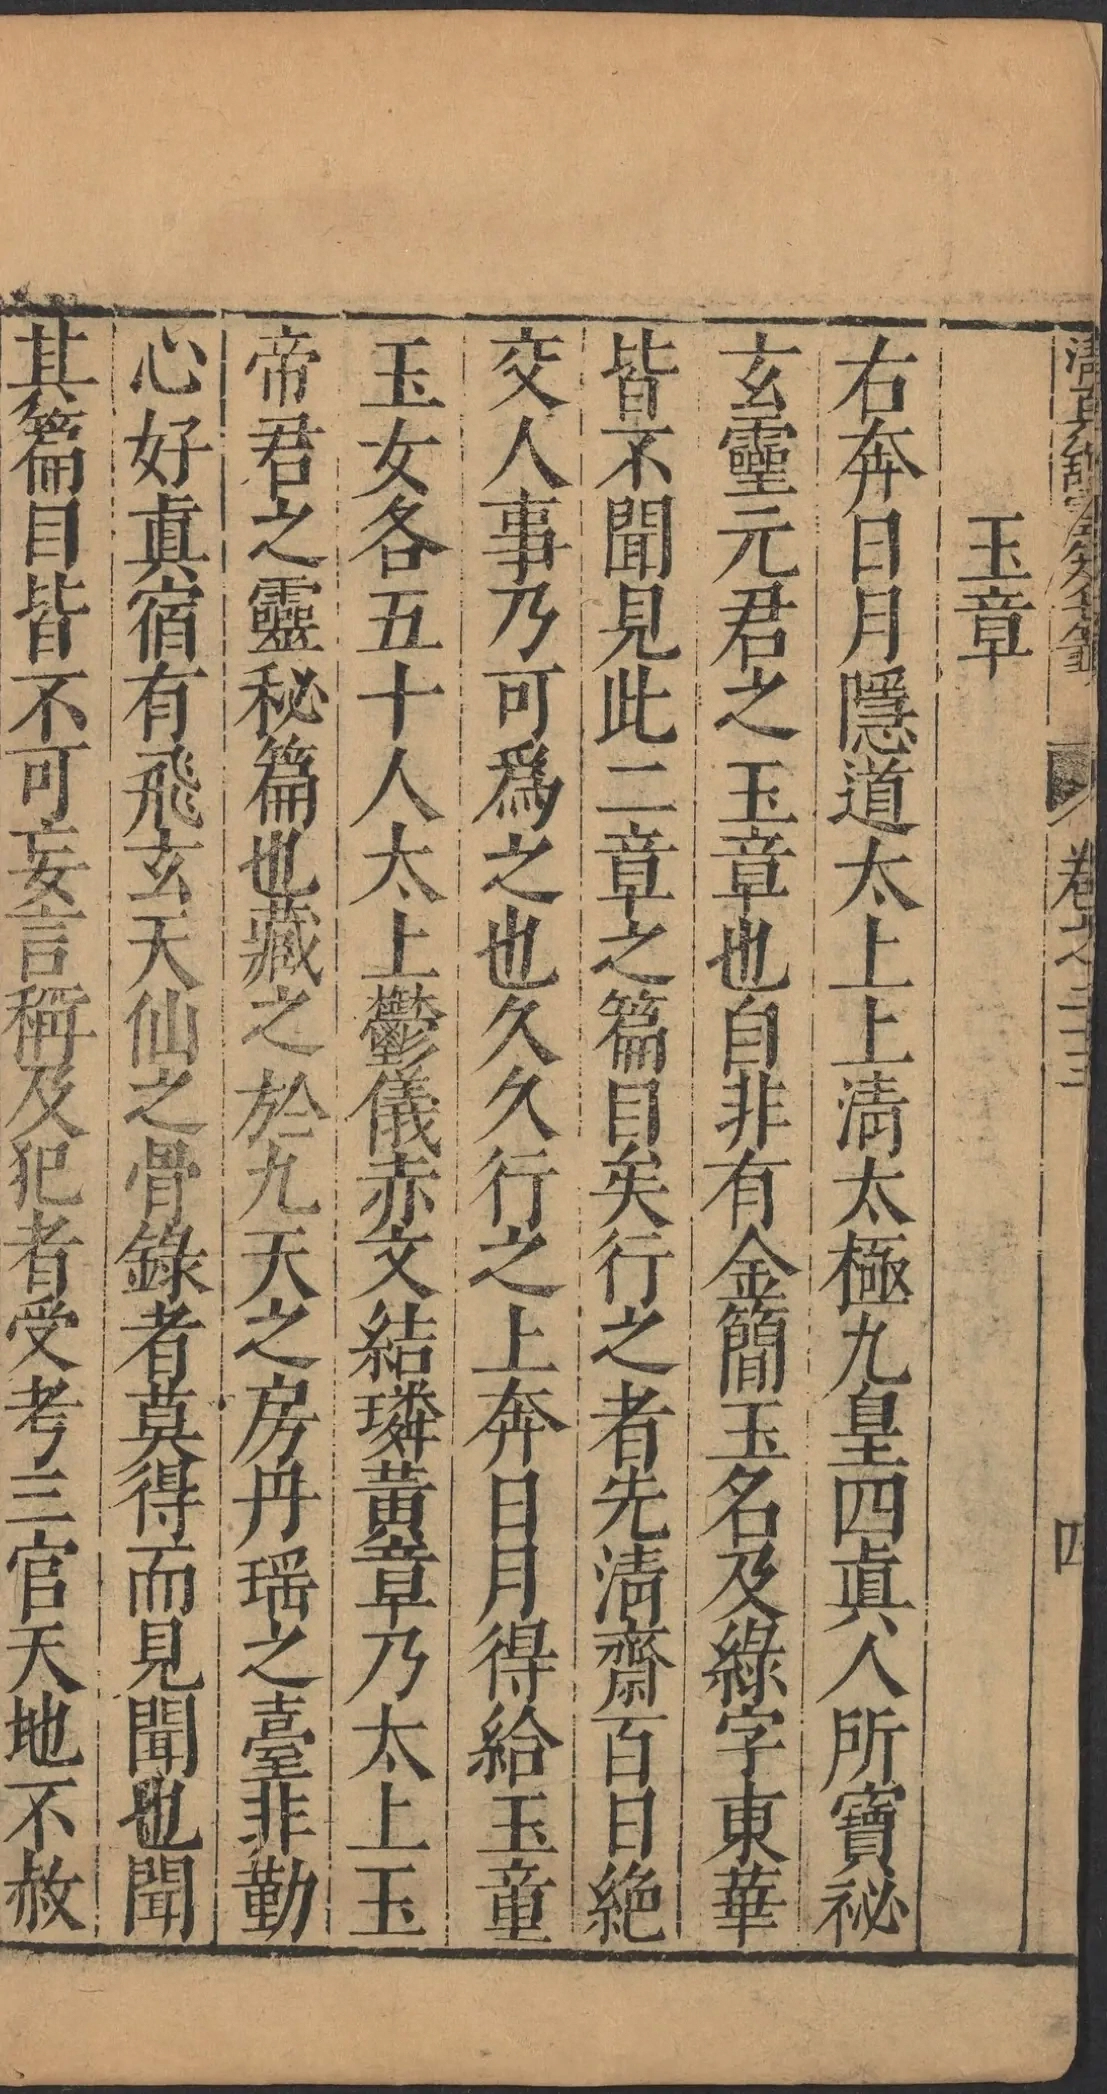 卷之二十三
四
玉章
右奔日月隱道太上上清太極九皇四眞人所寶祕
玄靈元君之玉章也自非有金簡玉名及綠字東華
皆不聞見此二章之篇目矣行之者先清齋百日絶
交人事乃可爲之也久久行之上奔日月得給玉童
玉女各五十人太上鬱儀赤文結璘黃章乃太上玉
帝君之靈秘篇也藏之於九天之房丹瑶之臺非勤
心好眞宿有飛玄天仙之骨錄者莫得而見聞也聞
其篇目皆不可妄言稱及犯者受考三官天地不赦